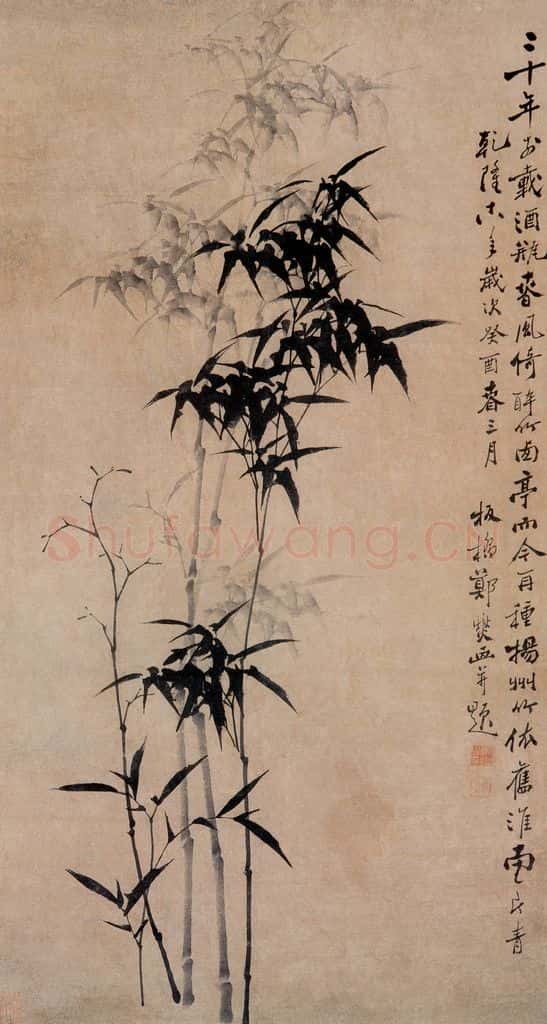 二十年前載酒瓶春風倚醉竹西亭而今再種揚州竹依舊淮南一片青
乾隆十八年歲次癸酉春三月
板橋鄭燮畫并題
Shufawang.CN